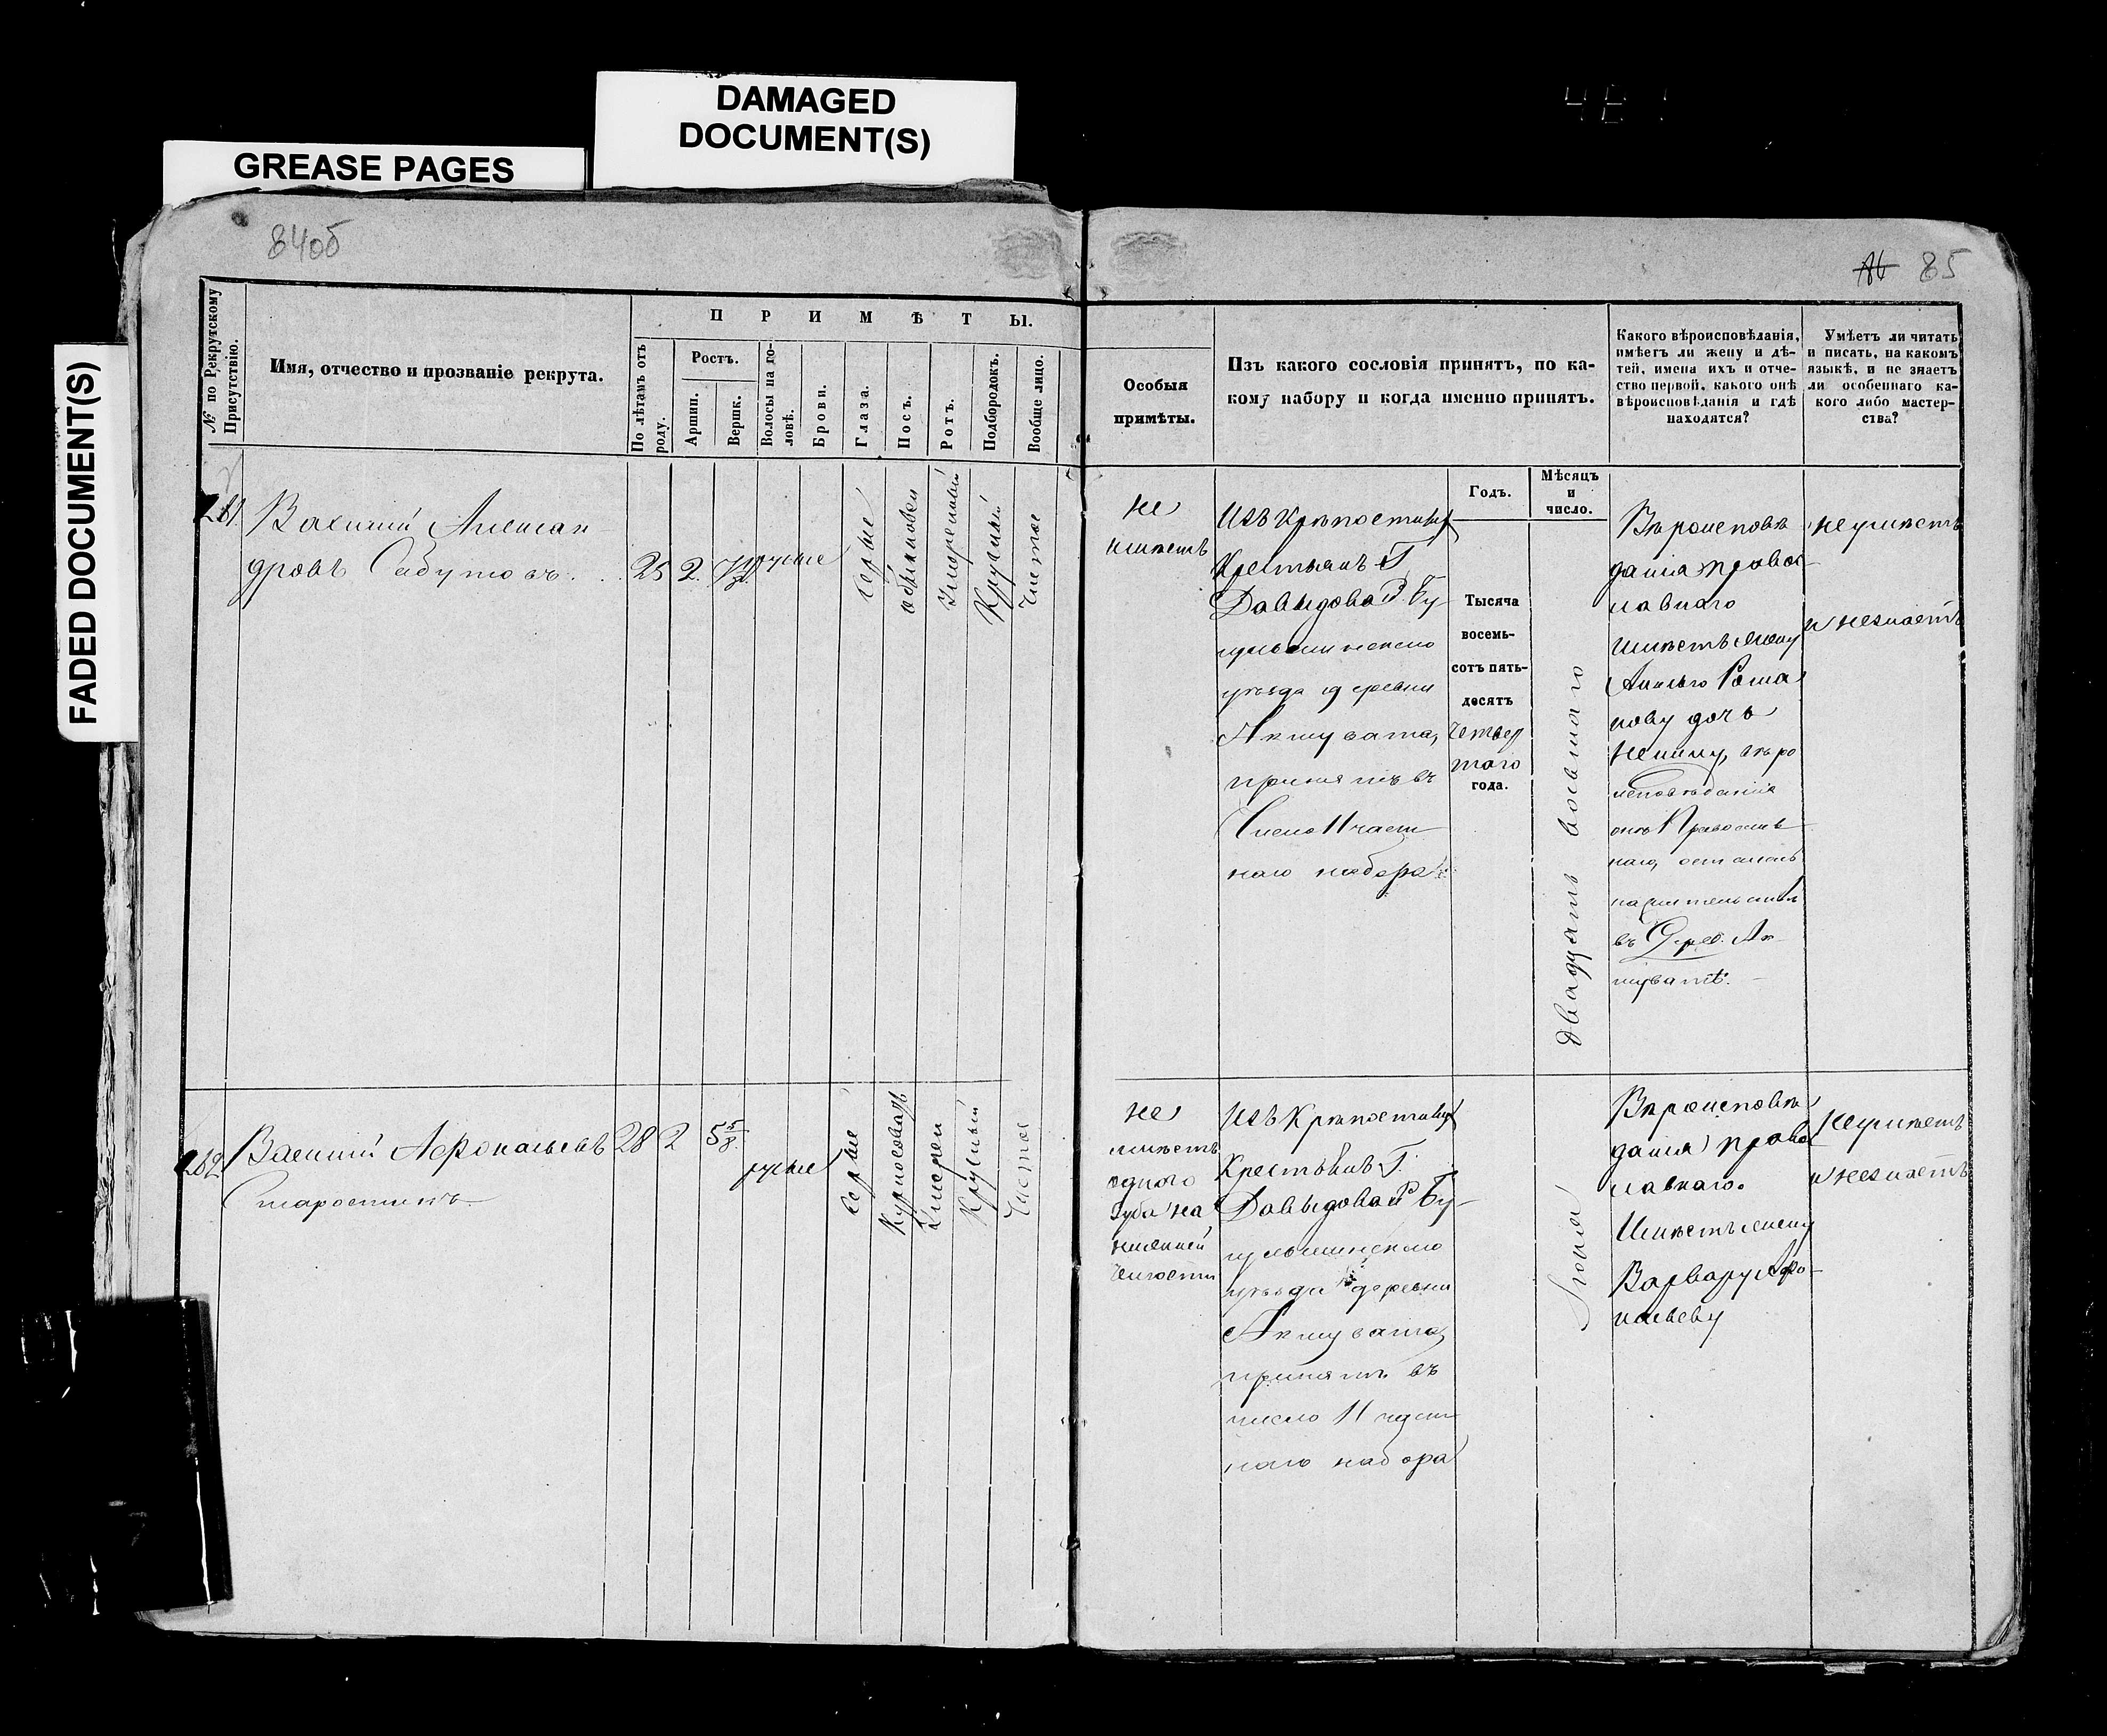 DAMAGED
DOCUMENT(S)
GREASE PAGES
FADED DOCUMENT(S)
84об
85
№ по Рекрутскому
Присутствію.
Имя, отчество и прозваніе рекрута.
ПРИМѢТЫ.
По лѣтамъ отъ
роду.
Ростъ.
Аршин.
Вершк.
Волосы на го-
ловѣ.
Брови.
Глаза.
Носъ.
Ротъ.
Подбородокъ.
Вообще лицо.
Особыя
примѣты.
Изъ какого сословія принятъ, по ка-
кому набору и когда именно принятъ.
Какого вѣроисповѣданія,
имѣетъ ли жену и дѣ-
тей, имена ихъ и отче-
ство первой, какого онѣ
вѣроисповѣданія и гдѣ
находятся?
Умѣетъ ли читать
и писать, на какомъ
языкѣ, и не знаетъ
ли особеннаго ка-
кого либо мастер-
ства?
Годъ.
Мѣсяцъ
и
число.
281.
Василий Алексан
дровъ
25
2
русые
серые
обыкновен
умеренный
Круглый
Чистое
не
имѣетъ
Изъ Крѣпостныхъ
Крестьянъ Г
Давыдова Бу-
гульминскаго
уѣзда деревни
Акшувата,
принятъ въ
Число 11 част
наго набора
Тысяча
восемь-
сотъ пять-
десятъ
четвер
таго
года.
двадцать восьмаго
Вѣроисповѣ
дания правос
лавнаго
имѣетъ жену
Рома
нову дочь
вѣро
исповѣдания
онѣ Православ
наго,
въ Дерев. Ак
шуватѣ.
неумѣетъ
и незнаетъ
282
Василий Афонасьевъ
Старостинъ
28
2
5 5/8
русые
серые
Курносоватъ
умерен
Круглый
Чистое
не
имѣетъ
одного
зуба на
нижней
челюсти
Изъ Крѣпостныхъ
Крестьянъ Г.
Давыдова Бу-
гульминскаго
уѣзда деревни
Акшувата,
принятъ въ
число 11 част
наго набора
Июня
Вѣроисповѣ
дания право
лавнаго.
Имѣетъ жену
Варвару Афо-
насьеву
неумѣетъ
и незнаетъ